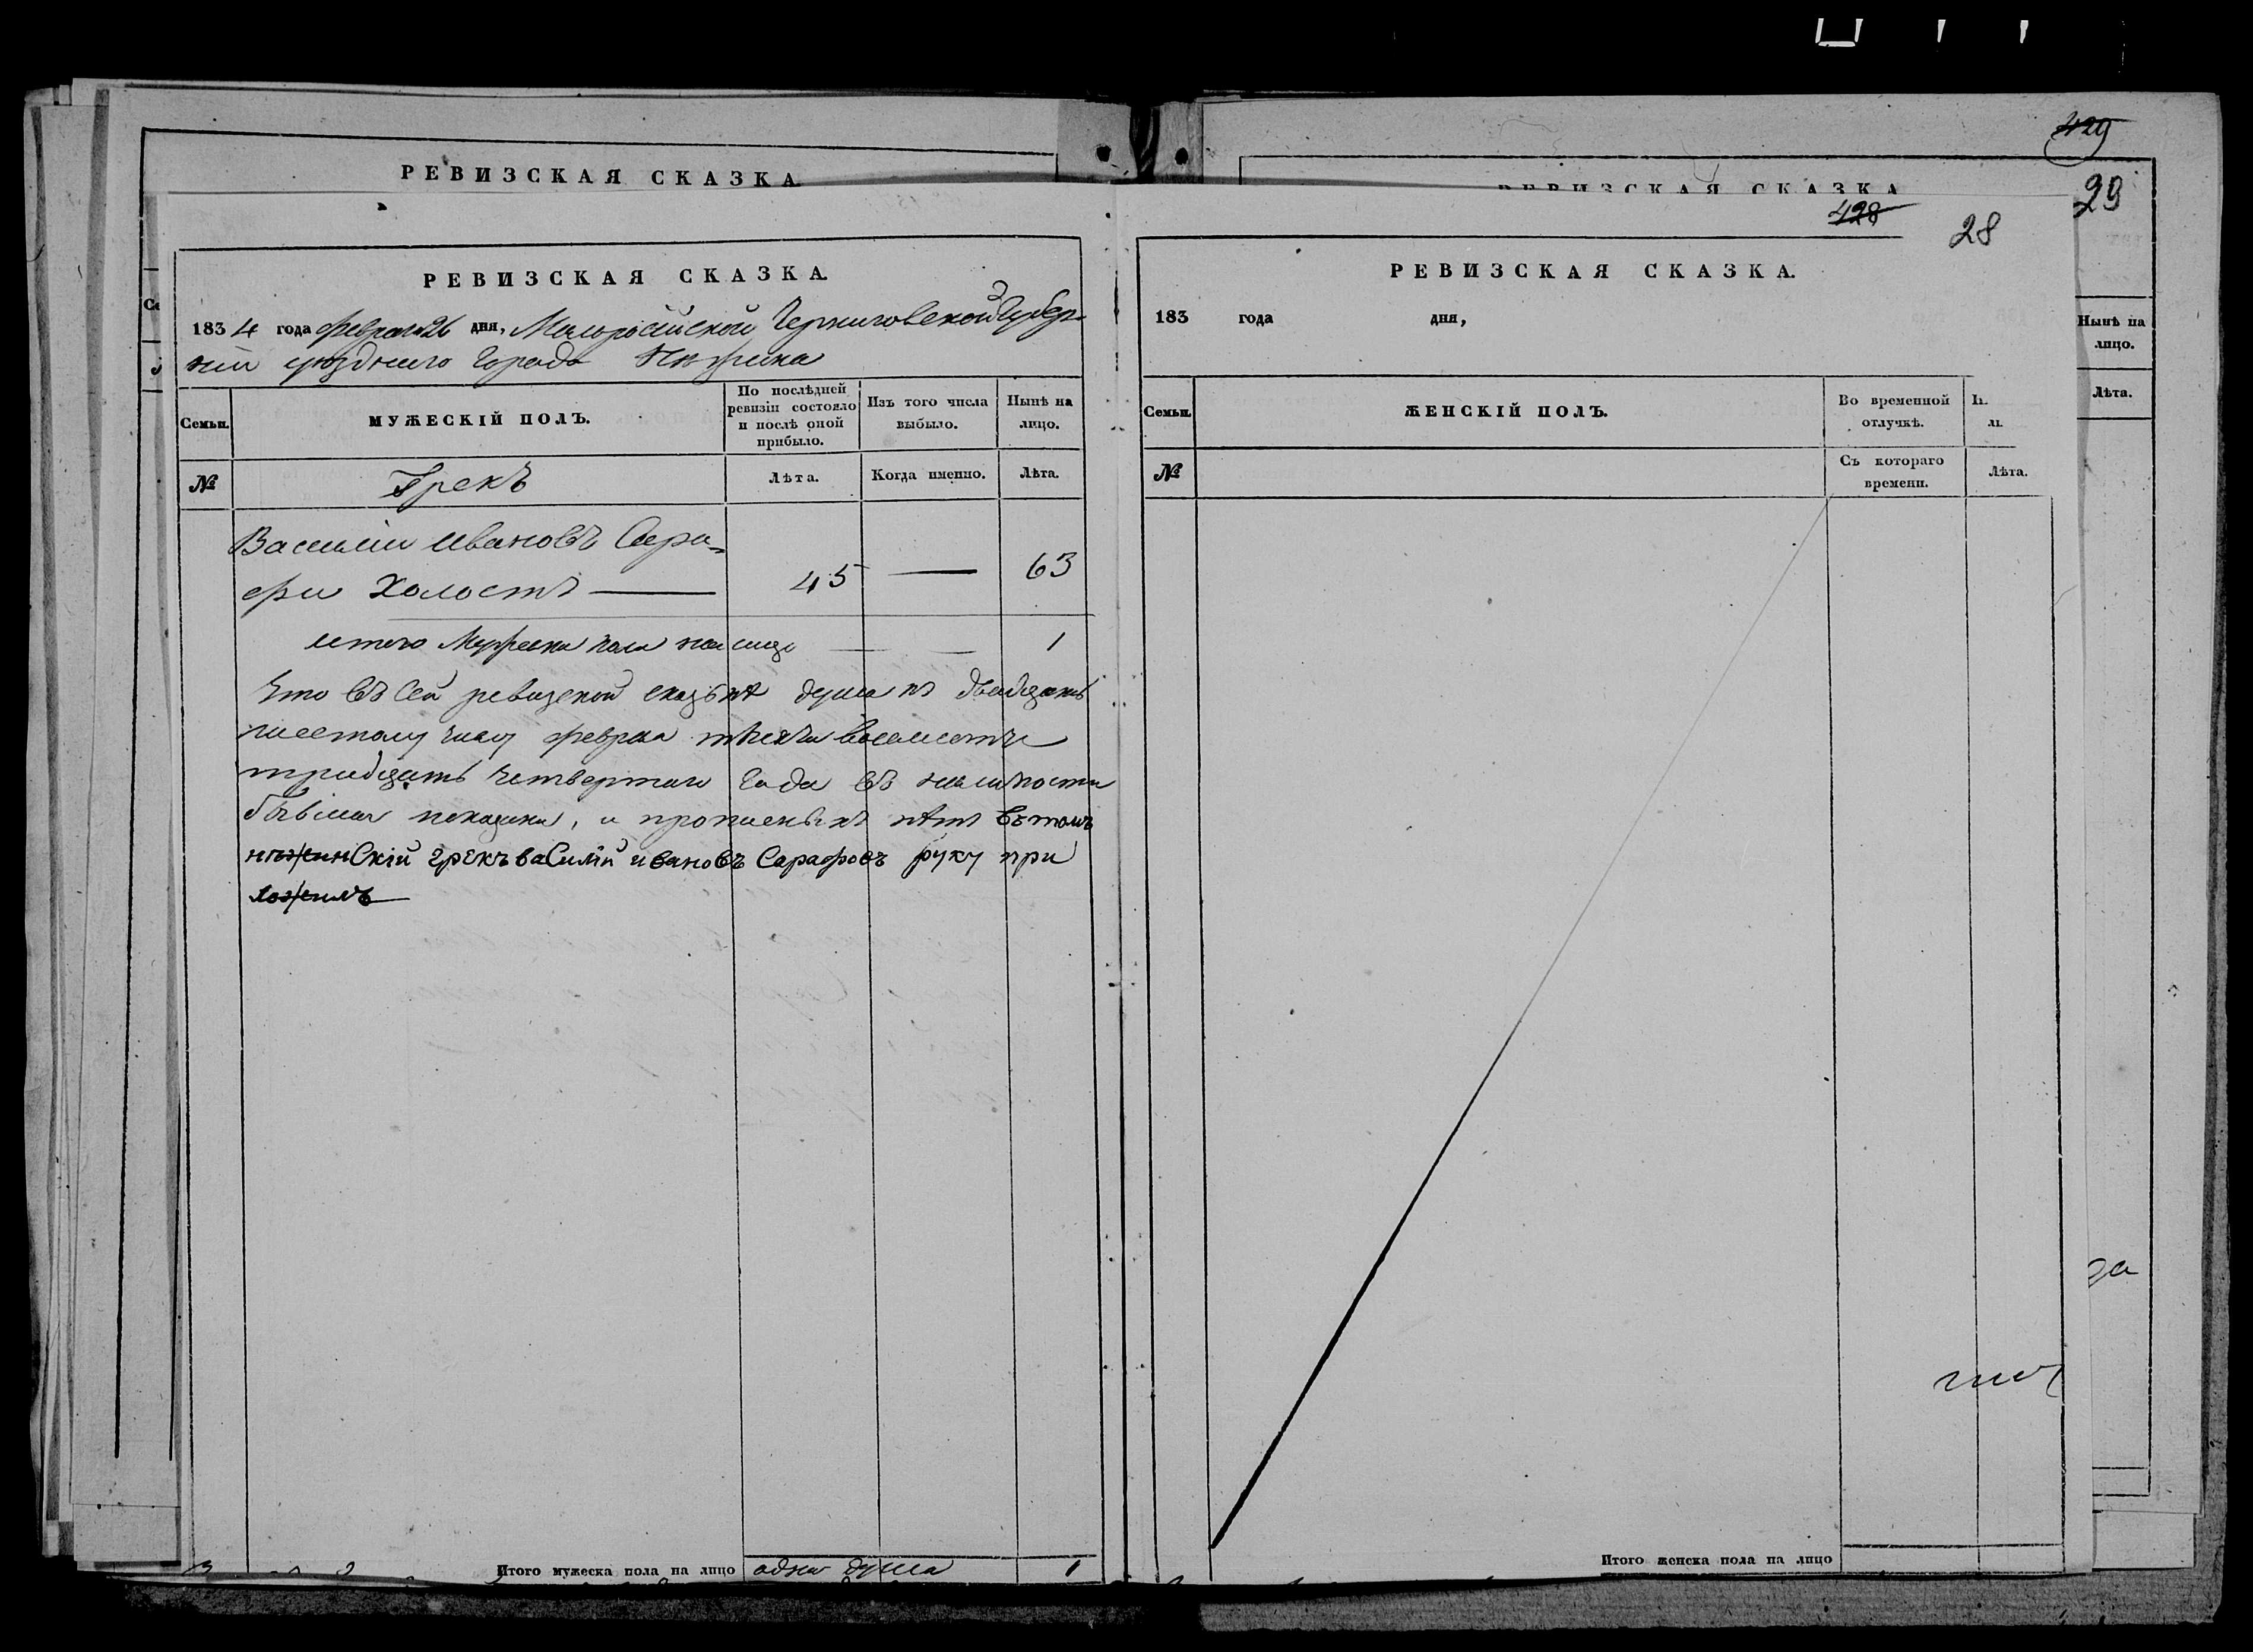 РЕВИЗСКАЯ СКАЗКА.
РЕВИЗСКАЯ СКАЗКА.
1834 года февраля 26 дня, Малоросійской Черниговской Губер-
ніи уезднаго Города Нѣжина
Семьи.
МУЖЕСКІЙ ПОЛЪ.
По послѣдней ревизіи состояло и послѣ оной прибыло.
Изъ того числа выбыло.
Нынѣ на лицо.
№
Грекъ
Лѣта.
Когда именно.
Лѣта.
Василій Ивановъ Сара=
фи Холостъ
45 — 63
итого Мужеска пола на лицо 1
Что въ Сей ревизской сказкѣ душа къ двадцать
шестому числу февраля тысяча восемсотъ
тридцать четвертаго Года въ наличности
бывшая показана, и прописныхъ нѣтъ въ томъ
нѣжинскій грекъ василій ивановъ Сарафовъ руку при
ложилъ
Итого мужеска пола на лицо одна душа 1
РЕВИЗСКАЯ СКАЗКА
429
29
428
28
РЕВИЗСКАЯ СКАЗКА.
183 года дня,
Семьи.
ЖЕНСКІЙ ПОЛЪ.
Во временной отлучкѣ.
№
Съ котораго времени.
Лѣта.
Нынѣ на лицо.
Лѣта.
Итого женска пола на лицо